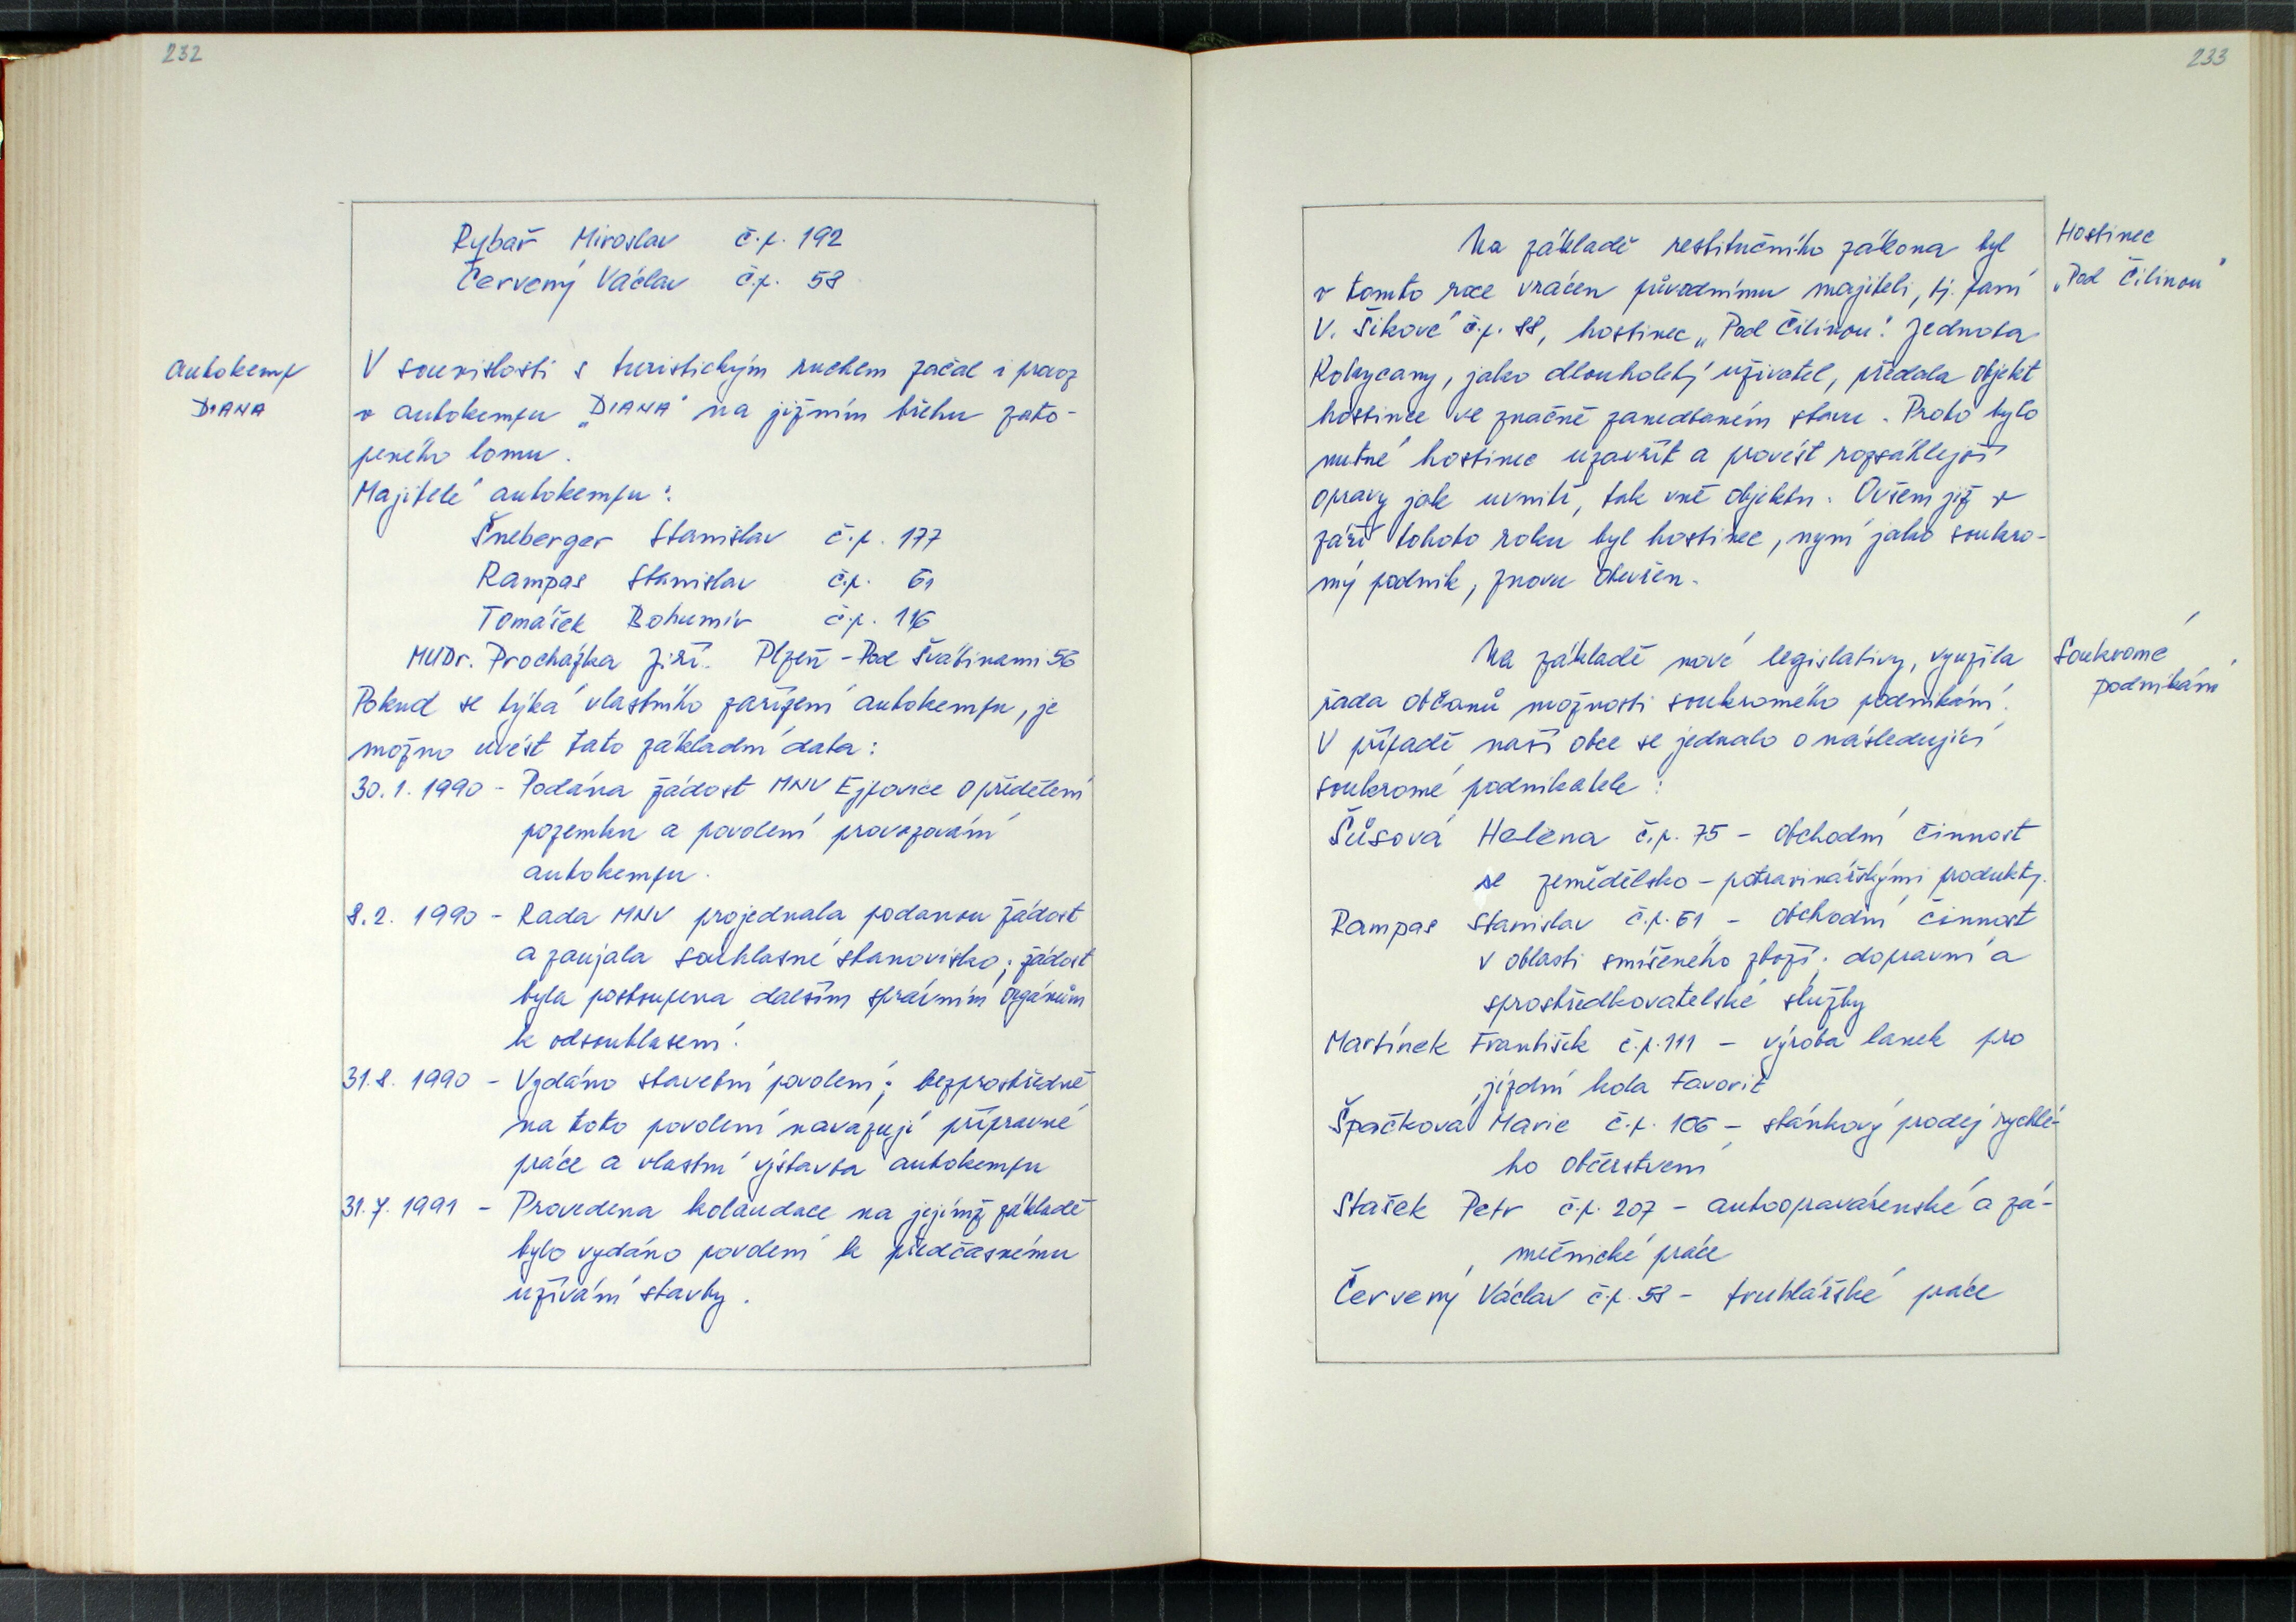 232
Rybař Miroslav č.p. 192
Červený Václav č.p. 58
Autokemp
DIANA
V souvislosti s turistickým ruchem začal i provoz
v autokempu „DIANA" na jižním břehu zato-
peného lomu.
Majitelé autokempu:
Šneberger Stanislav č.p. 177
Rampas Stanislav č.p. 61
Tomášek Bohumír č.p. 116
MUDr. Procházka Jiří. Plzeň - Pod Švabinami 56
Pokud se týká vlastního zařízení autokempu, je
možno uvést tato základní data:
30. 1. 1990 - Podána žádost MNV Ejpovice o přidělení
pozemku a povolení provozování
autokempu.
8. 2. 1990 - Rada MNV projednala podanou žádost
a zaujala souhlasné stanovisko; žádost
byla postoupena dalším správním orgánům
k odsouhlasení.
31. 8. 1990 - Vydáno stavební povolení; bezprostředně
na toto povolení navazují přípravné
práce a vlastní výstavba autokempu
31. 7. 1991 - Provedena kolaudace na jejímž základě
bylo vydáno povolení k předčasnému
užívání stavby.
233
Hostinec
„Pod Čilinou"
Na základě restitučního zákona byl
v tomto roce vrácen původnímu majiteli, tj. paní
V. Šikové č.p. 88, hostinec „Pod Čilinou". Jednota
Rokycany, jako dlouholetý uživatel, předala objekt
hostince ve značně zanedbaném stavu. Proto bylo
nutné hostinec uzavřít a provést rozsáhlejší
opravy jak uvnitř, tak vně objektu. Ovšem již v
září tohoto roku byl hostinec, nyní jako soukro-
mý podnik, znovu otevřen.
Soukromé
podnikání
Na základě nové legislativy, využila
řada občanů možnosti soukromého podnikání.
V případě naší obce se jednalo o následující
soukromé podnikatele:
Šůsová Helena č.p. 75 - obchodní činnost
se zemědělsko - potravinářskými produkty.
Rampas Stanislav č.p. 61 - obchodní činnost
v oblasti smíšeného zboží; dopravní a
sprostředkovatelské služby
Martínek František č.p. 111 - výroba lanek pro
jízdní kola Favorit
Špačková Marie č.p. 106 - stánkový prodej rychlé-
ho občerstvení
Stašek Petr č.p. 207 - autoopravárenské a zá-
mečnické práce
Červený Václav č.p. 58 - truhlářské práce